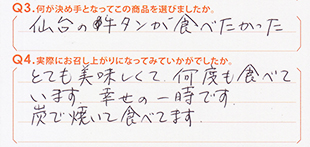 Q3.何が決め手となってこの商品を選びましたか。
仙台の牛タンが食べたかった
Q4.実際にお召し上がりになってみていかがでしたか。
とても美味しくて、何度も食べて
います。幸せの一時です。
炭で焼いて食べてます。